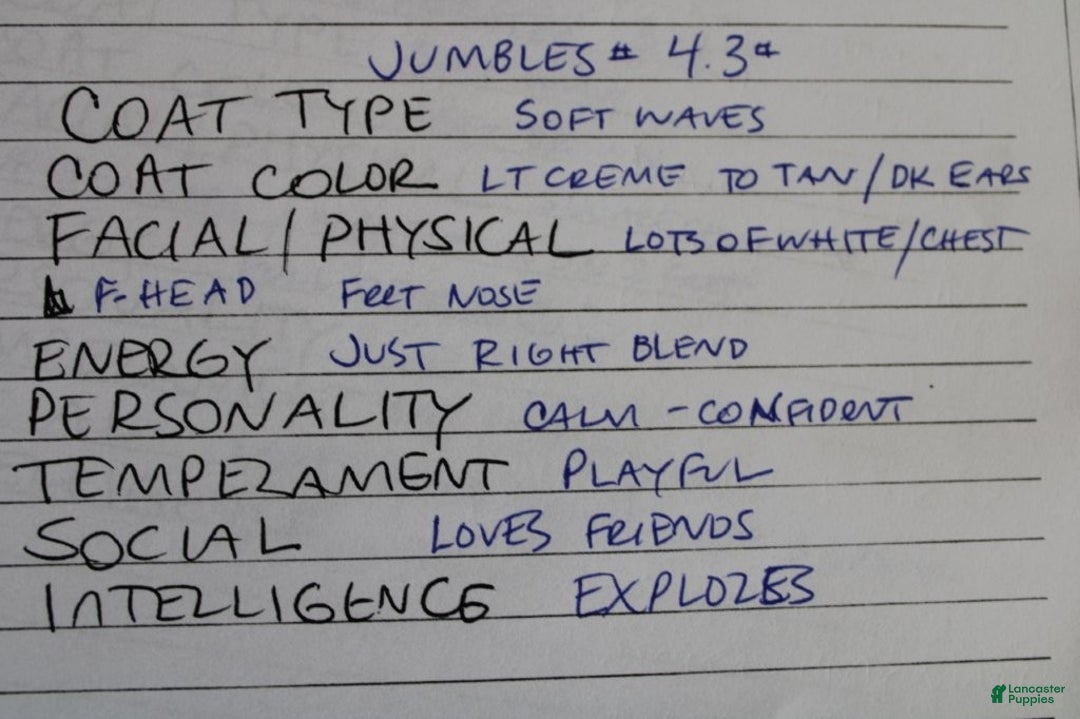 JUMBLES # 4.3#
COAT TYPE SOFT WAVES
COAT COLOR LT CREME TO TAN/DK EARS
FACIAL/PHYSICAL LOTS OF WHITE/CHEST
F-HEAD FEET NOSE
ENERGY JUST RIGHT BLEND
PERSONALITY CALM - CONFIDENT
TEMPERAMENT PLAYFUL
SOCIAL LOVES FRIENDS
INTELLIGENCE EXPLORES
Lancaster
Puppies